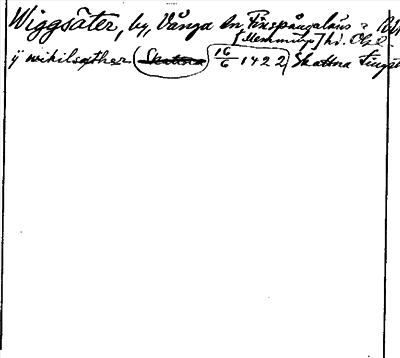 Wiggsäter, by, Vånga sn, Finspångaläns
[Memming] hd. Ög.
ij wikilsæther Skattna 16/6 1422 Skattna Tingst